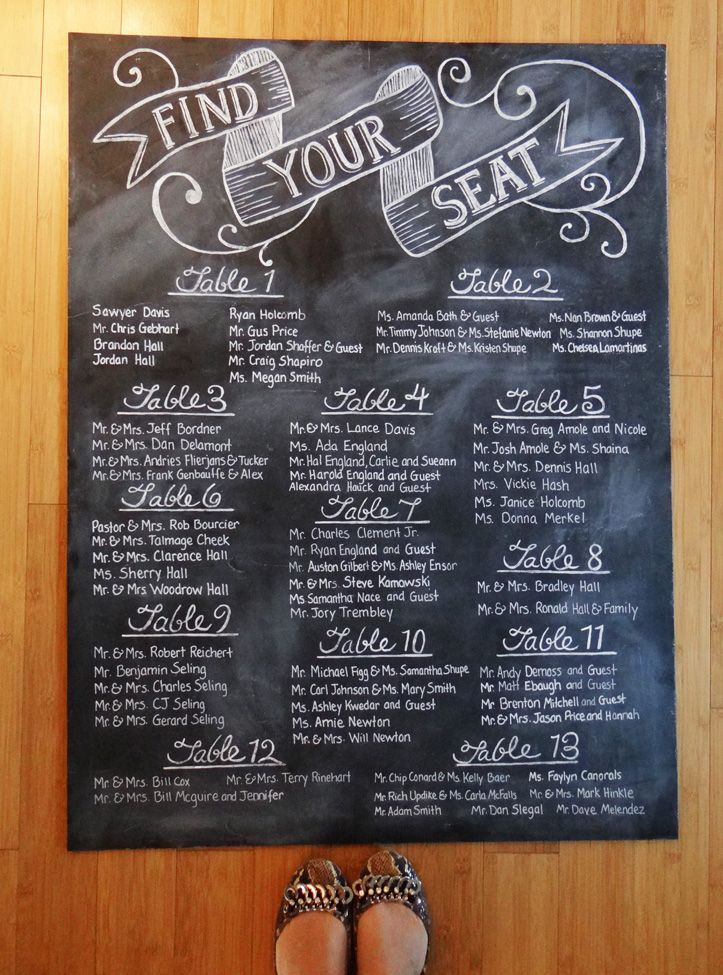 FIND
YOUR
SEAT
Table 1
Sawyer Davis
Mr. Chris Gebhart
Brandan Hall
Jordan Hall
Ryan Holcomb
Mr. Gus Price
Mr. Jordan Shaffer & Guest
Mr. Craig Shapiro
Ms. Megan Smith
Table 2
Ms. Amanda Bath & Guest
Mr. Timmy Johnson & Ms. Stefanie Newton
Mr. Dennis Kroft & Ms. Kristen Shupe
Ms. Nan Brown & Guest
Ms. Shannon Shupe
Ms. Chelsea Lamartinas
Table 3
Mr. & Mrs. Jeff Bordner
Mr. & Mrs. Dan Delamont
Mr. & Mrs. Andries Flierjans & Tucker
Mr. & Mrs. Frank Genbauffe & Alex
Table 4
Mr. & Mrs. Lance Davis
Ms. Ada England
Mr. Hal England, Carlie and Sueann
Mr. Harold England and Guest
Alexandra Hauck and Guest
Table 5
Mr. & Mrs. Greg Amole and Nicole
Mr. Josh Amole & Ms. Shaina
Mr. & Mrs. Dennis Hall
Mrs. Vickie Hash
Ms. Janice Holcomb
Ms. Donna Merkel
Table 6
Pastor & Mrs. Rob Bourcier
Mr. & Mrs. Talmage Cheek
Mr. & Mrs. Clarence Hall
Ms. Sherry Hall
Mr. & Mrs Woodrow Hall
Table 7
Mr. Charles Clement Jr.
Mr. Ryan England and Guest
Mr. Auston Gilbert & Ms. Ashley Ensor
Mr. & Mrs. Steve Kamowski
Ms. Samantha Nace and Guest
Mr. Jory Trembley
Table 8
Mr. & Mrs. Bradley Hall
Mr. & Mrs. Ronald Hall & Family
Table 9
Mr. & Mrs. Robert Reichert
Mr. Benjamin Seling
Mr. & Mrs. Charles Seling
Mr. & Mrs. CJ Seling
Mr. & Mrs. Gerard Seling
Table 10
Mr. Michael Figg & Ms. Samantha Shupe
Mr. Carl Johnson & Ms. Mary Smith
Ms. Ashley Kwedar and Guest
Ms. Amie Newton
Mr. & Mrs. Will Newton
Table 11
Mr. Andy Demoss and Guest
Mr. Matt Ebaugh and Guest
Mr Brenton Mitchell and Guest
Mr. & Mrs. Jason Price and Hannah
Table 12
Mr. & Mrs. Bill Cox
Mr. & Mrs. Terry Rinehart
Mr. & Mrs. Bill Mcguire and Jennifer
Table 13
Mr. Chip Conard & Ms. Kelly Baer
Ms. Faylyn Canorals
Mr. Rich Updike & Ms. Carla McFalls
Mr. & Mrs. Mark Hinkle
Mr. Adam Smith
Mr. Dan Slegal
Mr. Dave Melendez